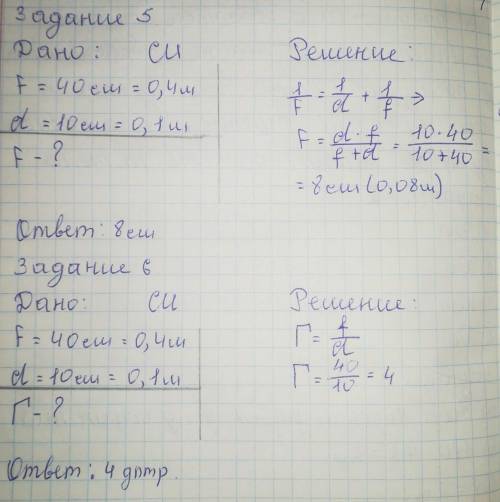 Задание 5
Дано: СИ Решение:
f = 40см = 0,4м
d = 10см = 0,1м
F - ?
1/F = 1/d + 1/f ⇒
F = d · f / f + d = 10 · 40 / 10 + 40 =
= 8см (0,08м)
Ответ: 8см
Задание 6
Дано: СИ Решение:
f = 40см = 0,4м
d = 10см = 0,1м
Г - ?
Г = f/d
Г = 40/10 = 4
Ответ: 4 дптр.